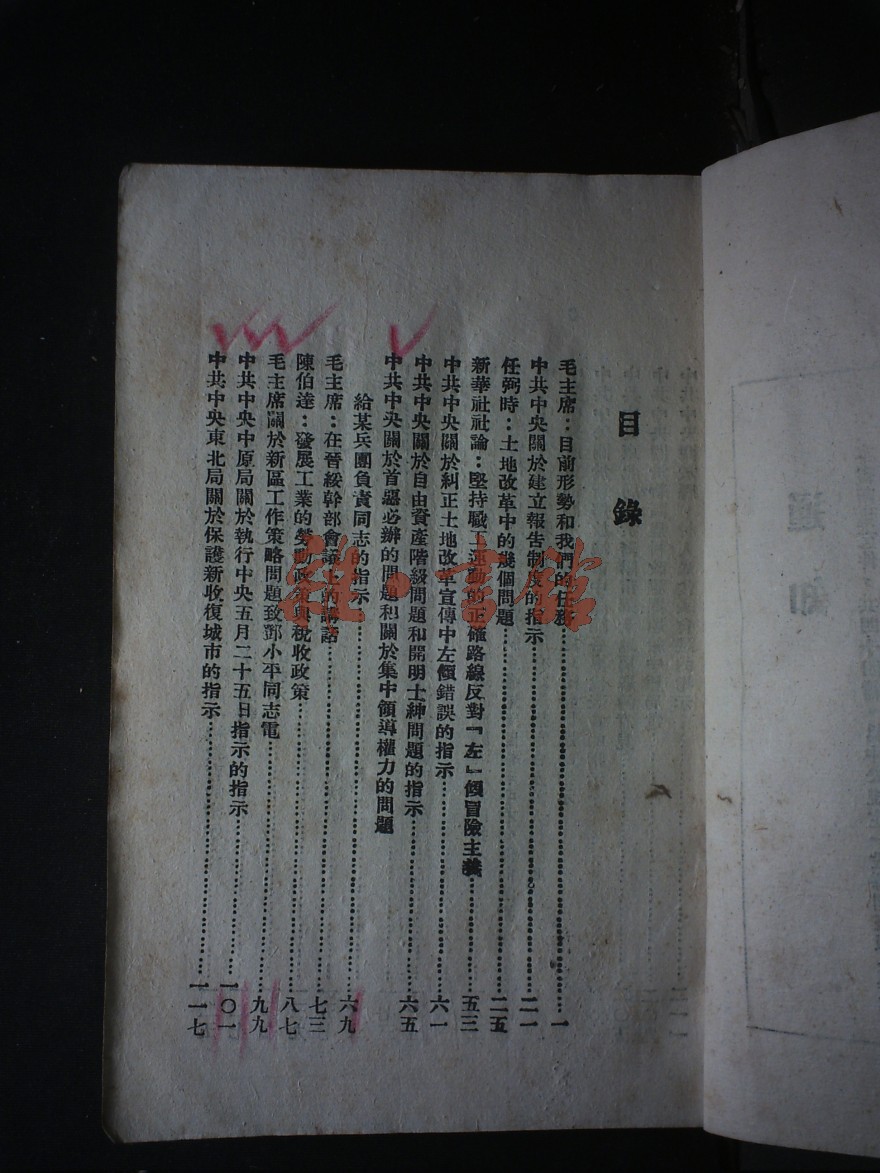 目錄
毛主席：目前形勢和我們的任務……一
中共中央關於建立報告制度的指示……二一
任弼時：土地改革中的幾個問題……二五
新華社社論：堅持職工運動的正確路線反對「左」傾冒險主義……五三
中共中央關於糾正土地改革宣傳中左傾錯誤的指示……六一
中共中央關於自由資產階級問題和開明士紳問題的指示……六五
中共中央關於首惡必辦的問題和關於集中領導權力的問題
給某兵團負責同志的指示……六九
毛主席：在晉綏幹部會議上的講話……七三
陳伯達：發展工業的勞動政策與稅收政策……八七
毛主席關於新區工作策略問題致鄧小平同志電……九九
中共中央中原局關於執行中央五月二十五日指示的指示……一〇一
中共中央東北局關於保護新收復城市的指示……一一七